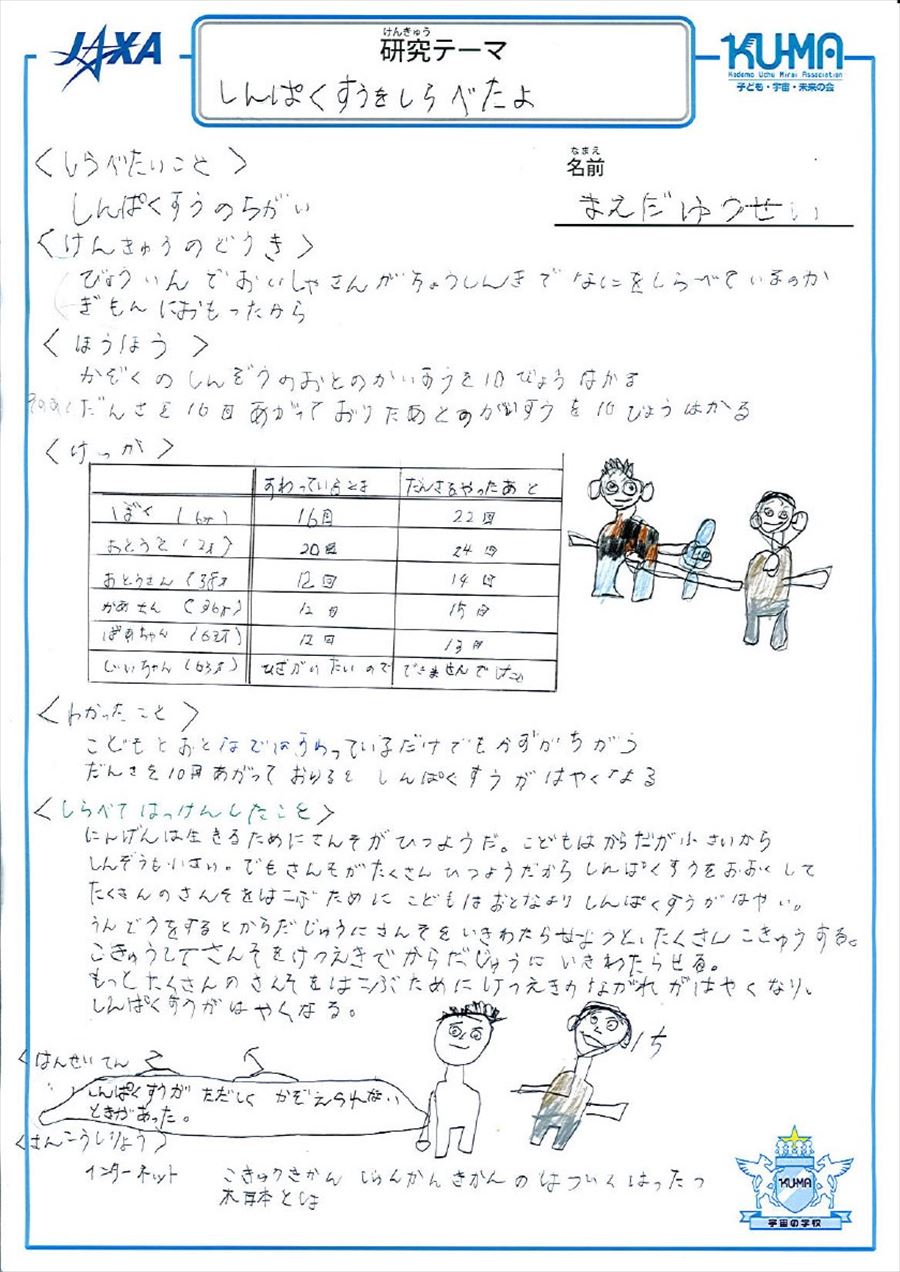 JAXA
けんきゅう
研究テーマ
しんぱくすうをしらべたよ
KU-MA
Kodomo Uchu Mirai Association
子ども・宇宙・未来の会
<しらべたいこと>
なまえ
名前
しんぱくすうのちがい
まえだゆうせい
<けんきゅうのどうき>
びょういんでおいしゃさんがちょうしんきでなにをしらべているのか
ぎもんにおもったから
<ほうほう>
かぞくのしんぞうのおとのかいすうを10びょうはかる
だんさを10回あがっておりたあとのかいすうを10びょうはかる
<けっか>
すわっているとき だんさをやったあと
ぼく (6才) 16回 22回
おとうと (2才) 20回 24回
おとうさん (38才) 12回 14回
かあさん (36才) 12回 15回
ばあちゃん (63才) 12回 13回
じいちゃん (63才) ひざがいたいので できませんでした
<わかったこと>
こどもとおとなではすわっているだけでもかずがちがう
だんさを10回あがっておりると しんぱくすうがはやくなる
<しらべてはっけんしたこと>
にんげんは生きるためにさんそがひつようだ。こどもはからだが小さいから
しんぞうも小さい。でもさんそがたくさんひつようだからしんぱくすうをおおくして
たくさんのさんそをはこぶために こどもはおとなよりしんぱくすうがはやい。
うんどうをするとからだじゅうにさんそをいきわたらせようと、たくさんこきゅうする。
こきゅうしてさんそをけつえきでからだじゅうに いきわたらせる。
もっとたくさんのさんそをはこぶためにけつえきのながれがはやくなり、
しんぱくすうがはやくなる。
<はんせいてん>
しんぱくすうが ただしく かぞえられない
ときがあった。
<さんこうしりょう>
インターネット こきゅうきかん じゅんかんきかんのはついくはったつ
とは
KU-MA
宇宙の学校